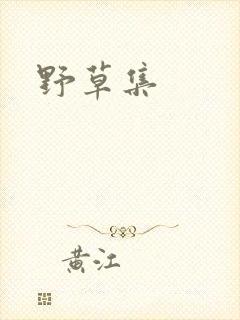 野草集
黄江